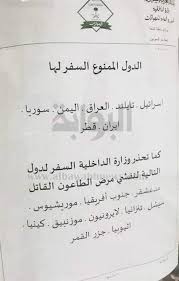 الدول الممنوع السفر لها
اسرائيل . تايلند . العراق . اليمن . سوريا .
ايران . قطر
البوابة
كما تحذر وزارة الداخلية السفر لدول
التالية لتفشي مرض الطاعون القاتل
مدغشقر . جنوب أفريقيا . موريشيوس .
سيشل . تنزانيا . لاريونيون . موزنبيق . كينيا .
اثيوبيا . جزر القمر